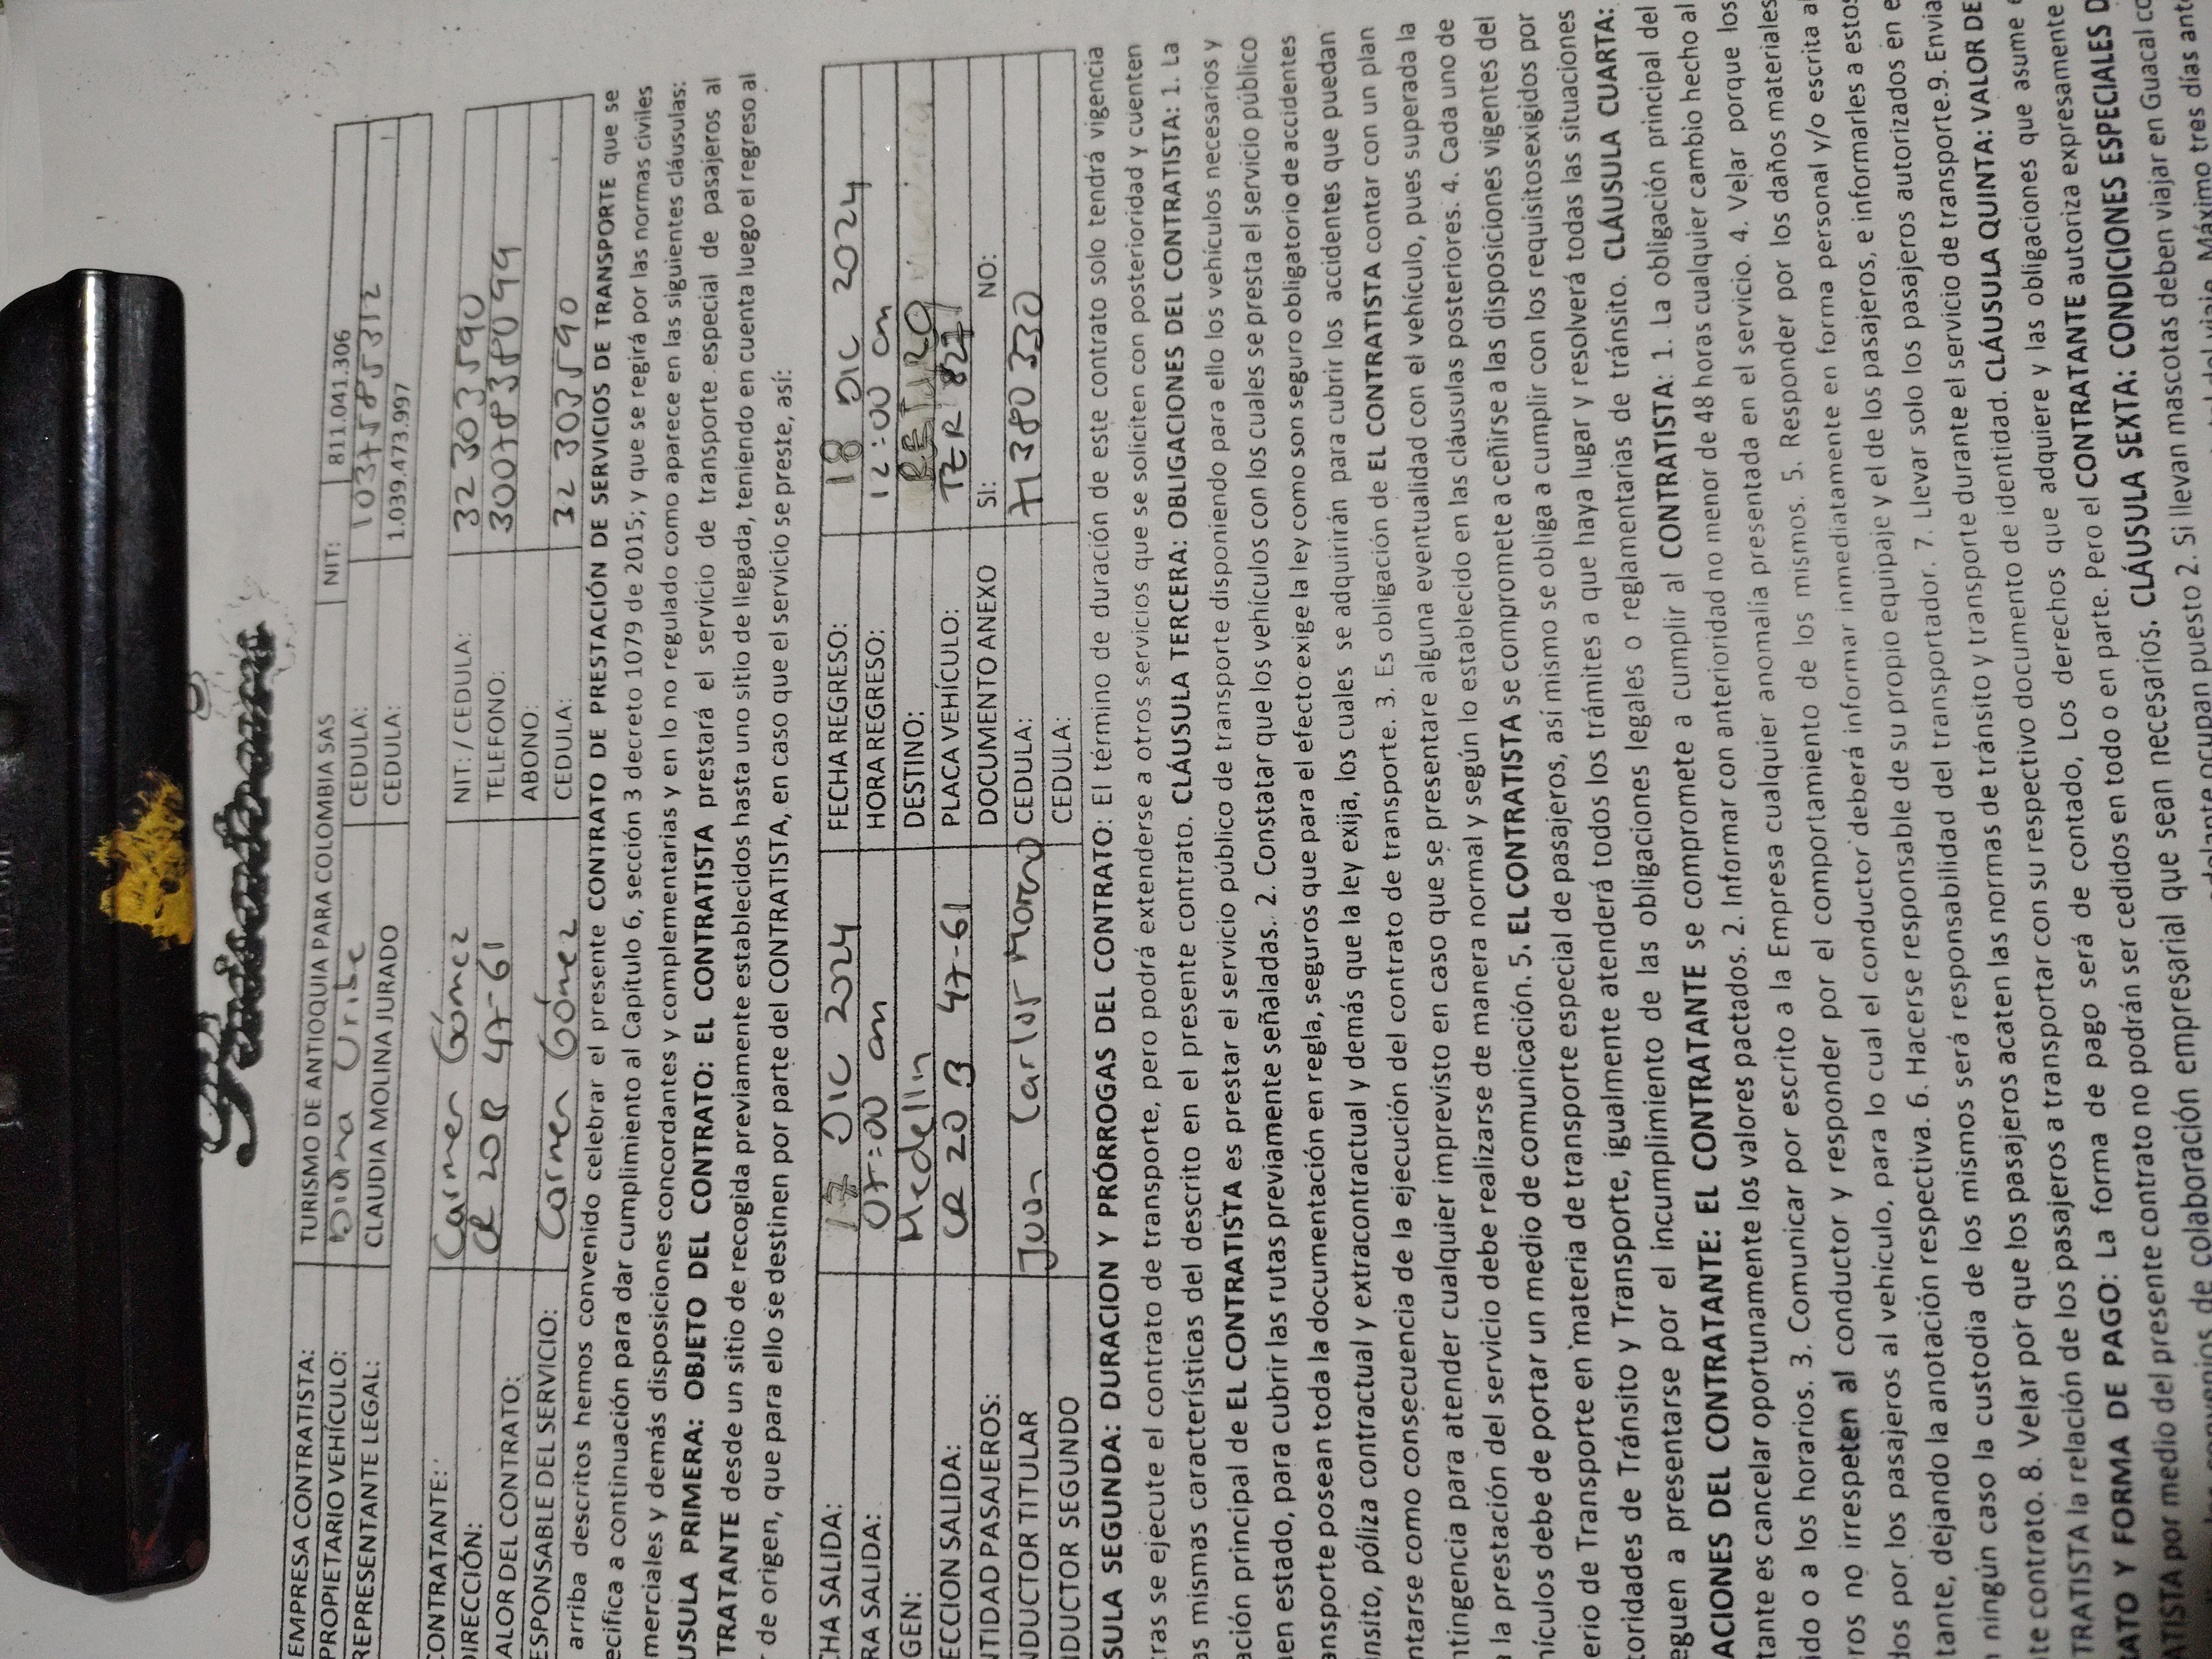 EMPRESA CONTRATISTA: TURISMO DE ANTIOQUIA PARA COLOMBIA SAS NIT: 811.041.306
PROPIETARIO VEHÍCULO: Diana Uribe CEDULA: 1037585312
REPRESENTANTE LEGAL: CLAUDIA MOLINA JURADO CEDULA: 1.039.473.997
CONTRATANTE: Carmen Gómez NIT: / CEDULA: 32 303 590
DIRECCIÓN: CR 20B 47-61 TELEFONO: 3007838099
ALOR DEL CONTRATO: ABONO:
ESPONSABLE DEL SERVICIO: Carmen Gómez CEDULA: 32 303590
arriba descritos hemos convenido celebrar el presente CONTRATO DE PRESTACIÓN DE SERVICIOS DE TRANSPORTE que se
ecifica a continuación para dar cumplimiento al Capítulo 6, sección 3 decreto 1079 de 2015; y que se regirá por las normas civiles
merciales y demás disposiciones concordantes y complementarias y en lo no regulado como aparece en las siguientes cláusulas:
USULA PRIMERA: OBJETO DEL CONTRATO: EL CONTRATISTA prestará el servicio de transporte especial de pasajeros al
TRATANTE desde un sitio de recogida previamente establecidos hasta uno sitio de llegada, teniendo en cuenta luego el regreso al
de origen, que para ello se destinen por parte del CONTRATISTA, en caso que el servicio se preste, así:
CHA SALIDA: 17 Dic 2024 FECHA REGRESO: 18 Dic 2024
RA SALIDA: 07:00 am HORA REGRESO: 12:00 am
GEN: Medellin DESTINO: RETIRO
ECCION SALIDA: CR 20 B 47-61 PLACA VEHÍCULO: TZR 827
NTIDAD PASAJEROS: DOCUMENTO ANEXO SI: NO:
NDUCTOR TITULAR Juan Carlos Moreno CEDULA: 71380330
NDUCTOR SEGUNDO CEDULA:
SULA SEGUNDA: DURACION Y PRÓRROGAS DEL CONTRATO: El término de duración de este contrato solo tendrá vigencia
tras se ejecute el contrato de transporte, pero podrá extenderse a otros servicios que se soliciten con posterioridad y cuenten
as mismas características del descrito en el presente contrato. CLÁUSULA TERCERA: OBLIGACIONES DEL CONTRATISTA: 1. La
ación principal de EL CONTRATISTA es prestar el servicio público de transporte disponiendo para ello los vehículos necesarios y
en estado, para cubrir las rutas previamente señaladas. 2. Constatar que los vehículos con los cuales se presta el servicio público
ansporte posean toda la documentación en regla, seguros que para el efecto exige la ley como son seguro obligatorio de accidentes
ánsito, póliza contractual y extracontractual y demás que la ley exija, los cuales se adquirirán para cubrir los accidentes que puedan
ntarse como consecuencia de la ejecución del contrato de transporte. 3. Es obligación de EL CONTRATISTA contar con un plan
ntingencia para atender cualquier imprevisto en caso que se presentare alguna eventualidad con el vehículo, pues superada la
la prestación del servicio debe realizarse de manera normal y según lo establecido en las cláusulas posteriores. 4. Cada uno de
hículos debe de portar un medio de comunicación. 5. EL CONTRATISTA se compromete a ceñirse a las disposiciones vigentes del
erio de Transporte en materia de transporte especial de pasajeros, así mismo se obliga a cumplir con los requisitosexigidos por
toridades de Tránsito y Transporte, igualmente atenderá todos los trámites a que haya lugar y resolverá todas las situaciones
eguen a presentarse por el incumplimiento de las obligaciones legales o reglamentarias de tránsito. CLÁUSULA CUARTA:
ACIONES DEL CONTRATANTE: EL CONTRATANTE se compromete a cumplir al CONTRATISTA: 1. La obligación principal del
tante es cancelar oportunamente los valores pactados. 2. Informar con anterioridad no menor de 48 horas cualquier cambio hecho al
ido o a los horarios. 3. Comunicar por escrito a la Empresa cualquier anomalía presentada en el servicio. 4. Velar porque los
ros no irrespeten al conductor y responder por el comportamiento de los mismos. 5. Responder por los daños materiales
dos por los pasajeros al vehículo, para lo cual el conductor deberá informar inmediatamente en forma personal y/o escrita al
tante, dejando la anotación respectiva. 6. Hacerse responsable de su propio equipaje y el de los pasajeros, e informarles a estos
n ningún caso la custodia de los mismos será responsabilidad del transportador. 7. Llevar solo los pasajeros autorizados en e
te contrato. 8. Velar por que los pasajeros acaten las normas de tránsito y transporte durante el servicio de transporte.9. Envia
TRATISTA la relación de los pasajeros a transportar con su respectivo documento de identidad. CLÁUSULA QUINTA: VALOR DE
ATO Y FORMA DE PAGO: La forma de pago será de contado, Los derechos que adquiere y las obligaciones que asume
ATISTA por medio del presente contrato no podrán ser cedidos en todo o en parte. Pero el CONTRATANTE autoriza expresamente
de colaboración empresarial que sean necesarios. CLÁUSULA SEXTA: CONDICIONES ESPECIALES D
ocupan puesto 2. Si llevan mascotas deben viajar en Guacal co
Máximo tres días ant